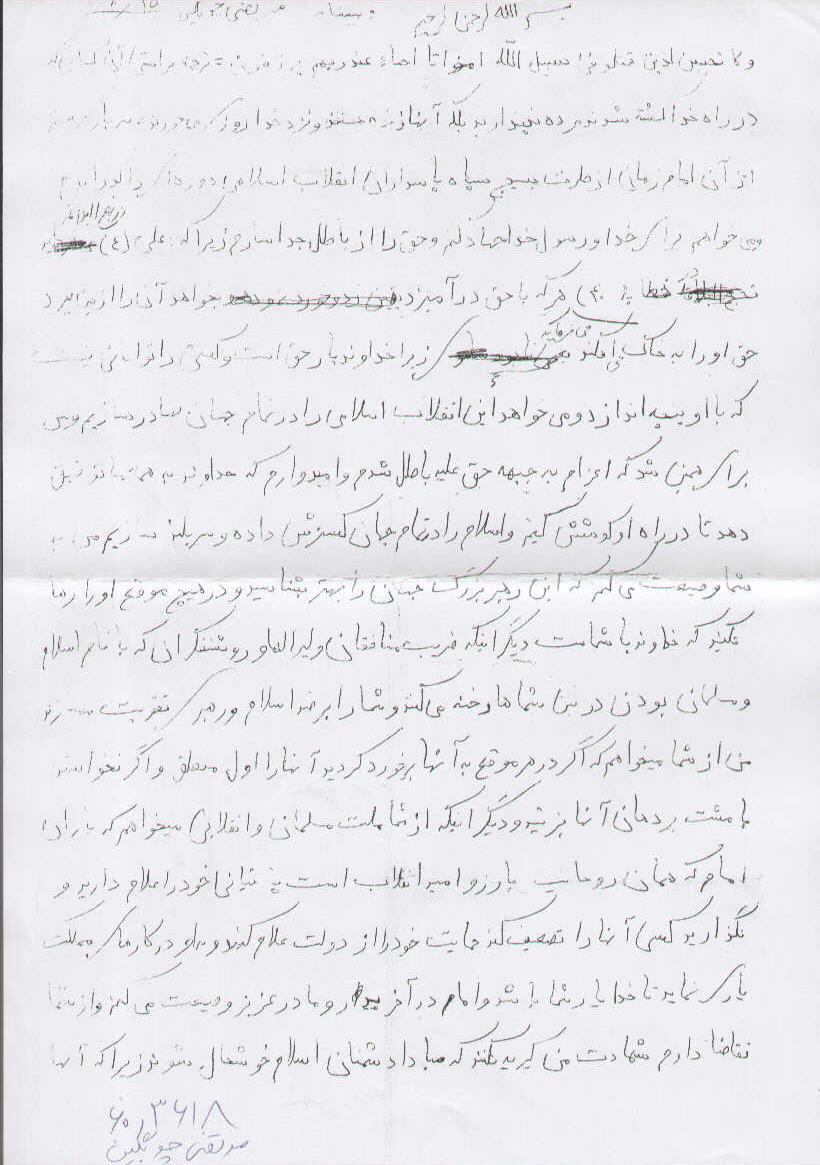 بسم الله الرحمن الرحیم
ولا تحسبن الذین قتلو فی سبیل الله امواتا احیاء عند ربهم یرزقون
در راه خدا کشته شدند مرده نپندارید بلکه آنها زنده هستند و نزد خدا روزی
از آن امام زمانی از طرف بسیج سپاه پاسداران انقلاب اسلامی
نهج البلاغه
می خواهم برای خدا و رسول خدا جهاد کنم و حق را از باطل جدا سازم زیرا که علی (ع)
هر که با حق در آمیزد خواهد آن را از بین ببرد
می فرماید
حق او را به خاک می افکند زیرا خداوند یار حق است و کسی را توانائی نیست
که با او پنجه اندازد و می خواهد این انقلاب اسلامی را در تمام جهان صادر سازیم و من
برای همین شد که اعزام به جبهه حق علیه باطل شدم و امیدوارم که خداوند به همه ما توفیق
دهد تا در راه او کوشش کنیم و اسلام را در تمام جهان گسترش داده و سربلند سازیم من به
شما وصیت می کنم که این رهبر بزرگ جهان را بهتر بشناسید و در هیچ موقع او را رها
نکنید که خداوند با شماست دیگر اینکه فریب منافقان و لیبرالها و روشنفکران که با نام اسلام
و مسلمان بودن در بین شماها رخنه می کنند و شما را بر ضد اسلام و رهبری
من از شما میخواهم که اگر در هر موقع به آنها برخورد کردید آنها را اول منطق و اگر نخواستند
با مشت بر دهان آنها بزنید و دیگر اینکه از شما ملت مسلمان و انقلابی میخواهم که یاران
امام که همان روحانیت مبارز و امید انقلاب است پشتیبانی خود را اعلام دارید و
نگذارید کسی آنها را تضعیف کند حمایت خود را از دولت علام کنید و در کارهای مملکت
یاری نماید تا خدا یار شما باشد و امام در آخر پدر و مادر عزیز وصیت می کنم و از شما
تقاضا دارم شهادت من گریه نکنید که مبادا دشمنان اسلام خوشحال شوند زیرا که آنها